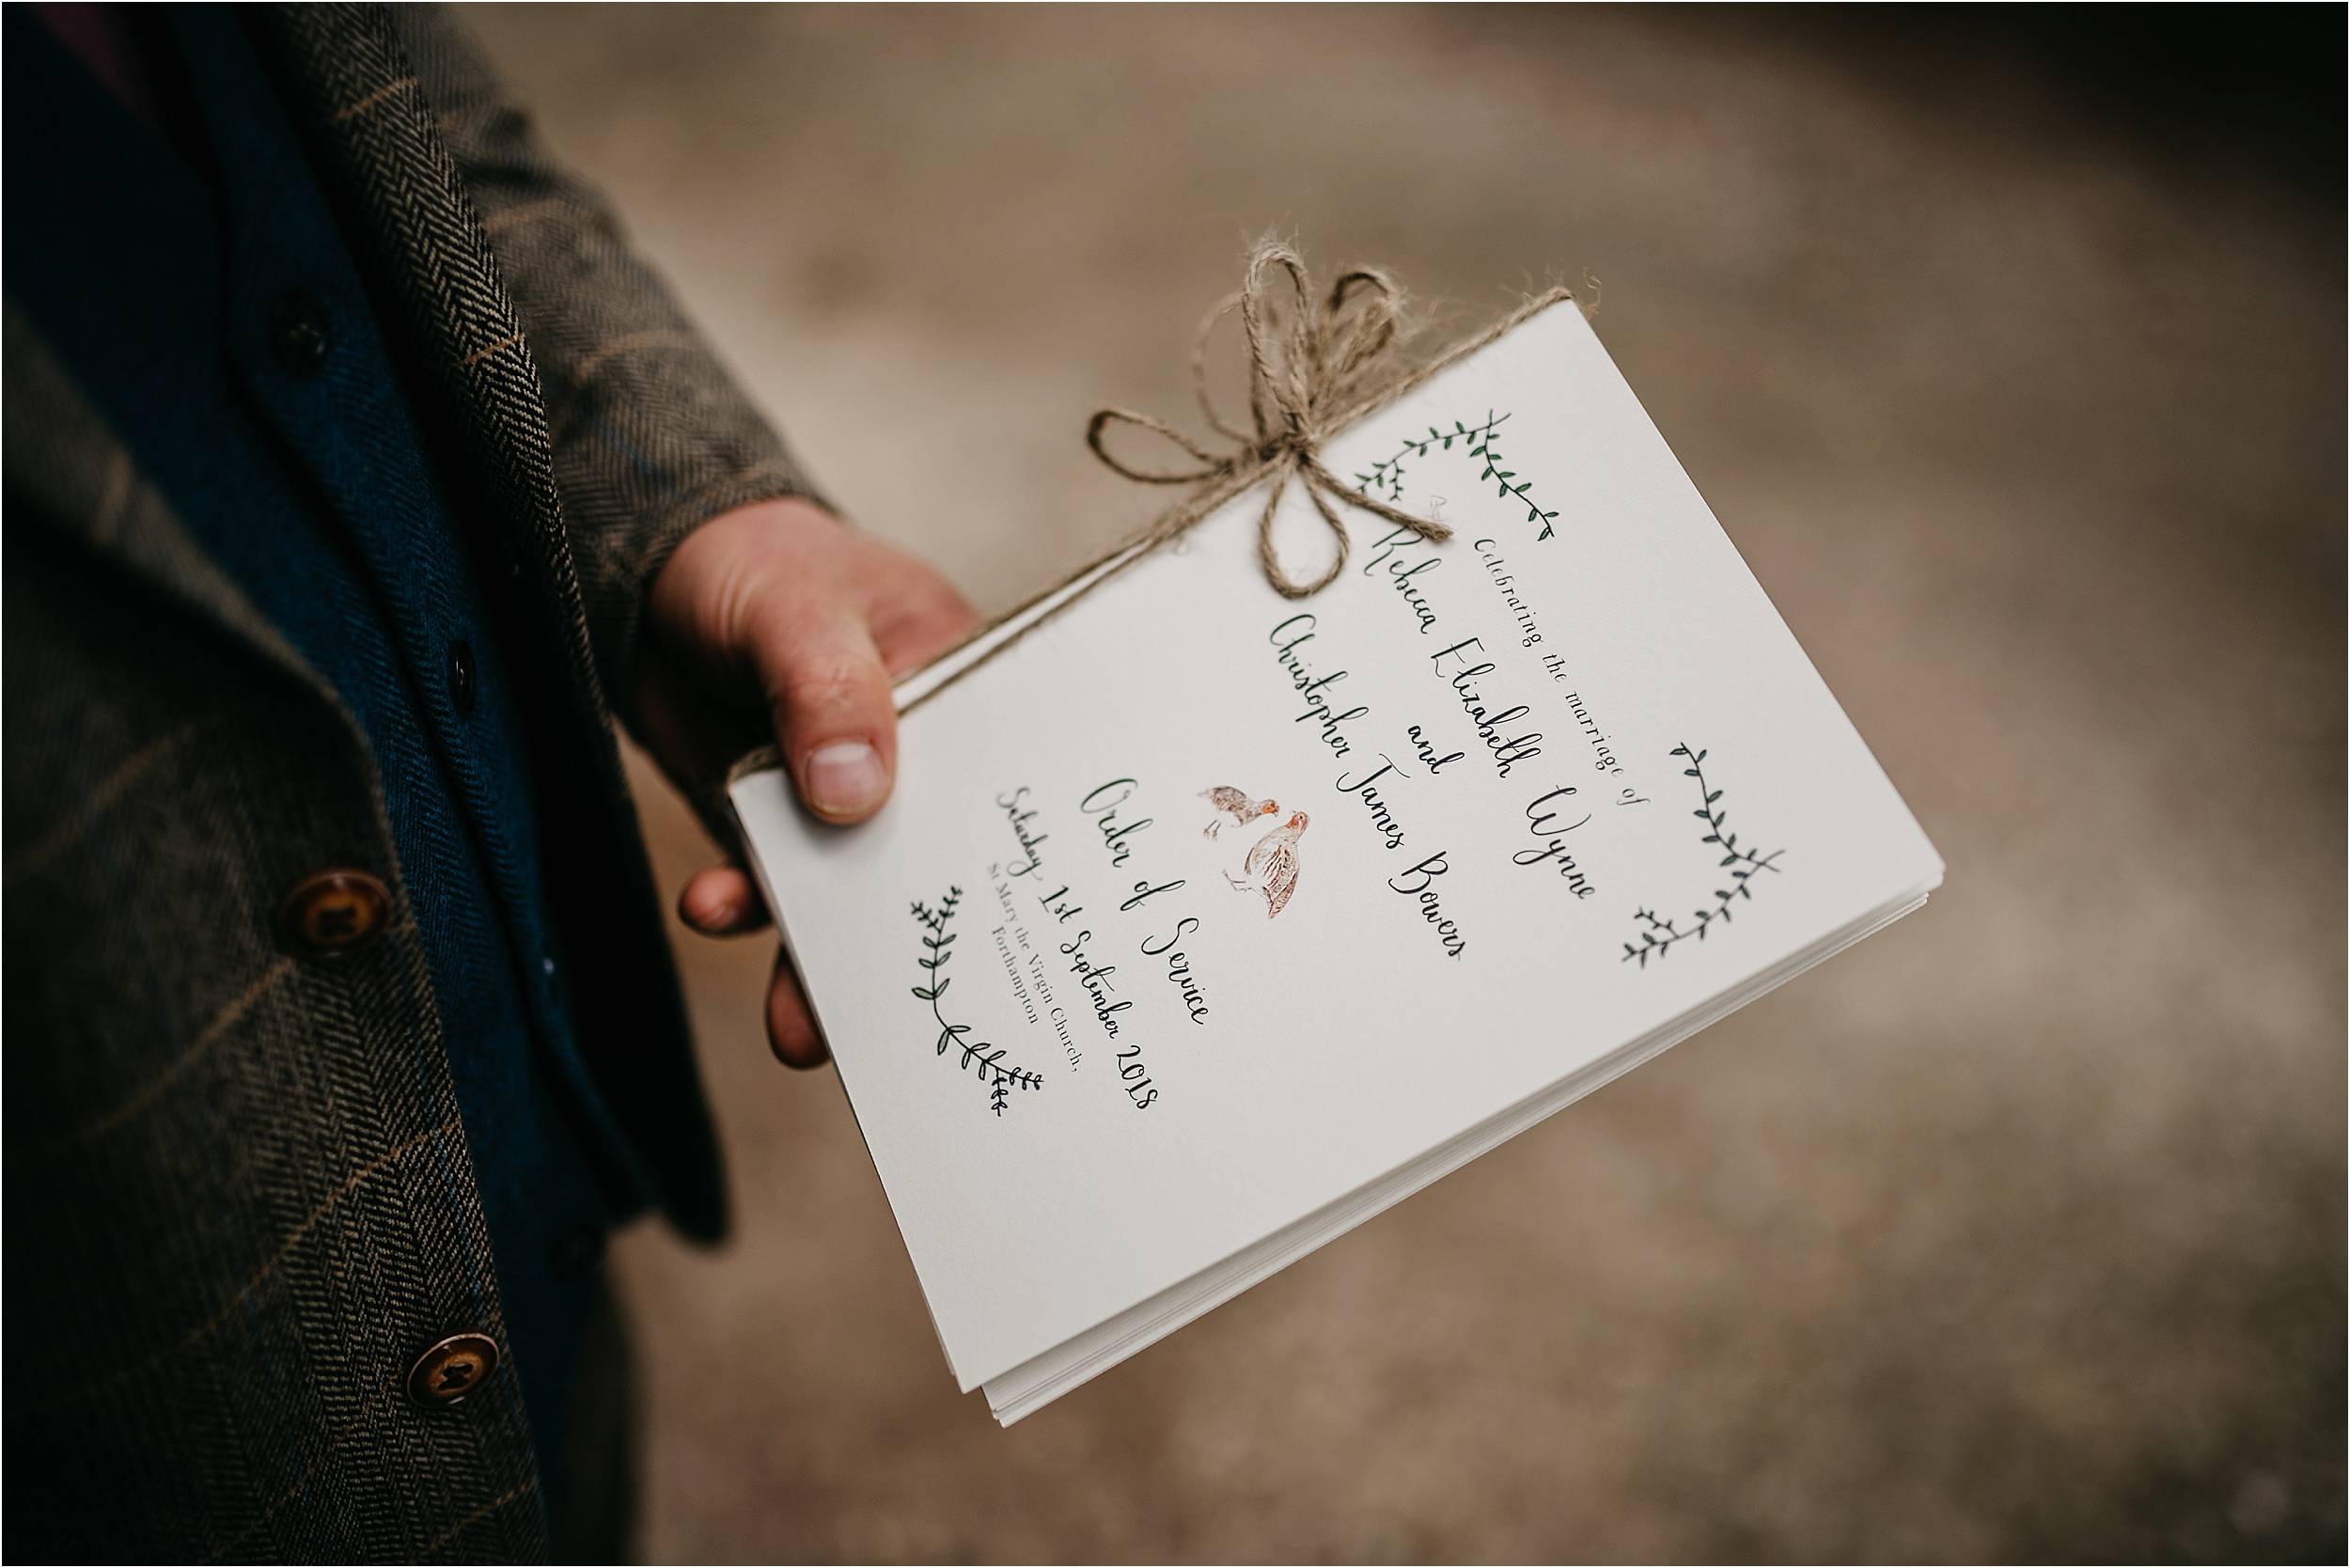 Celebrating the marriage of
Rebecca Elizabeth Wynne
and
Christopher James Bowers
Order of Service
Saturday 1st September 2018
St Mary the Virgin Church,
Forthampton